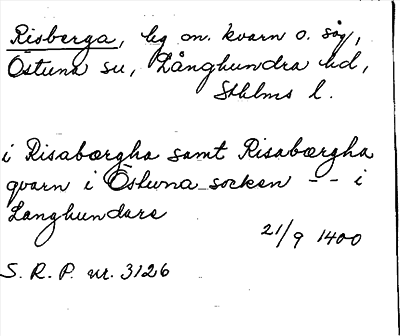 Risberga, lg om. kvarn o. såg,
Östuna sn, Långhundra hd,
Sthlms l.
i Risabærgha samt Risabærgha
qvarn i Östuna socken -- i
Langhundare
21/9 1400
S. R. P. nr. 3126